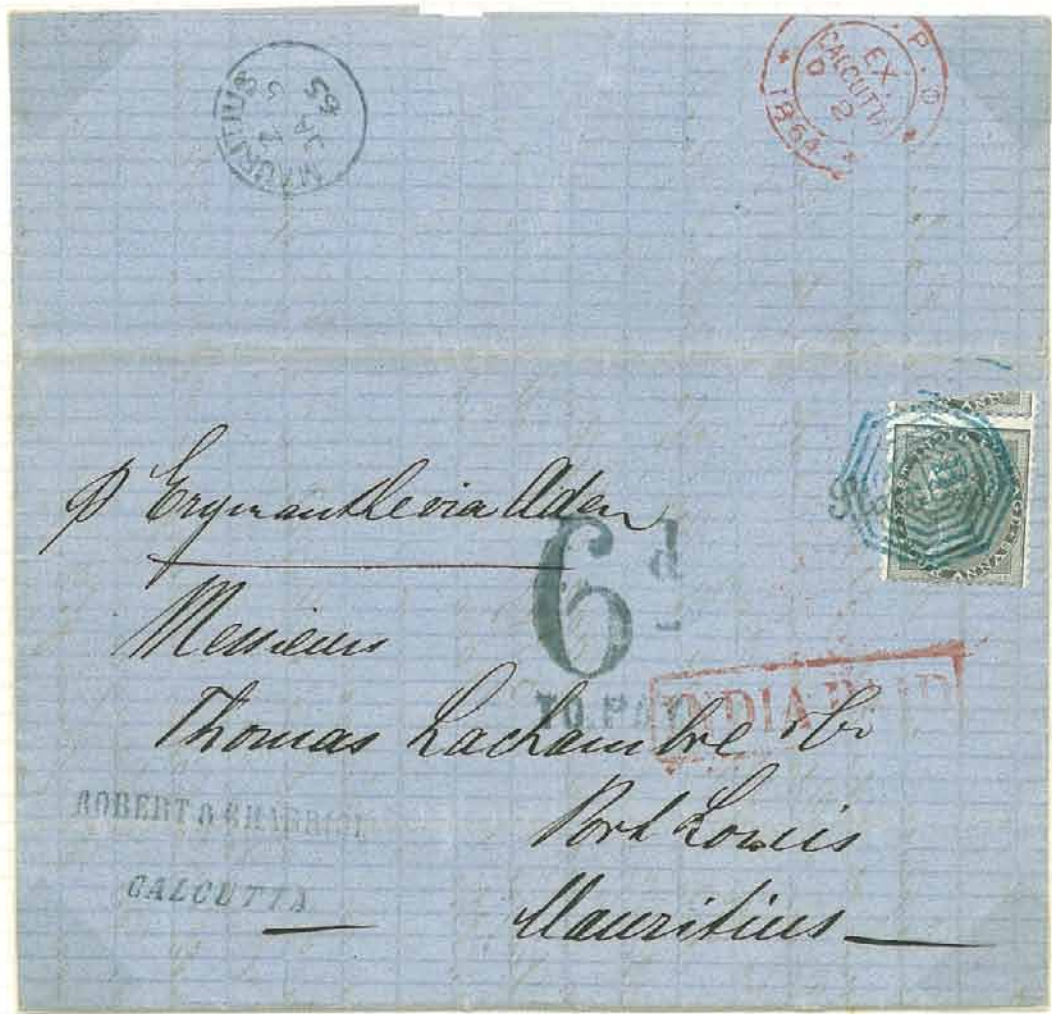 MAURITIUS
JA 5
65
G.P.O
EX.
CALCUTTA
D 2
1864
p Erymanthe via Aden
6d
TO PAY
INDIA PAID
Messieurs
Thomas Lachambre & Co
Port Louis
Mauritius
ROBERT &
CALCUTTA